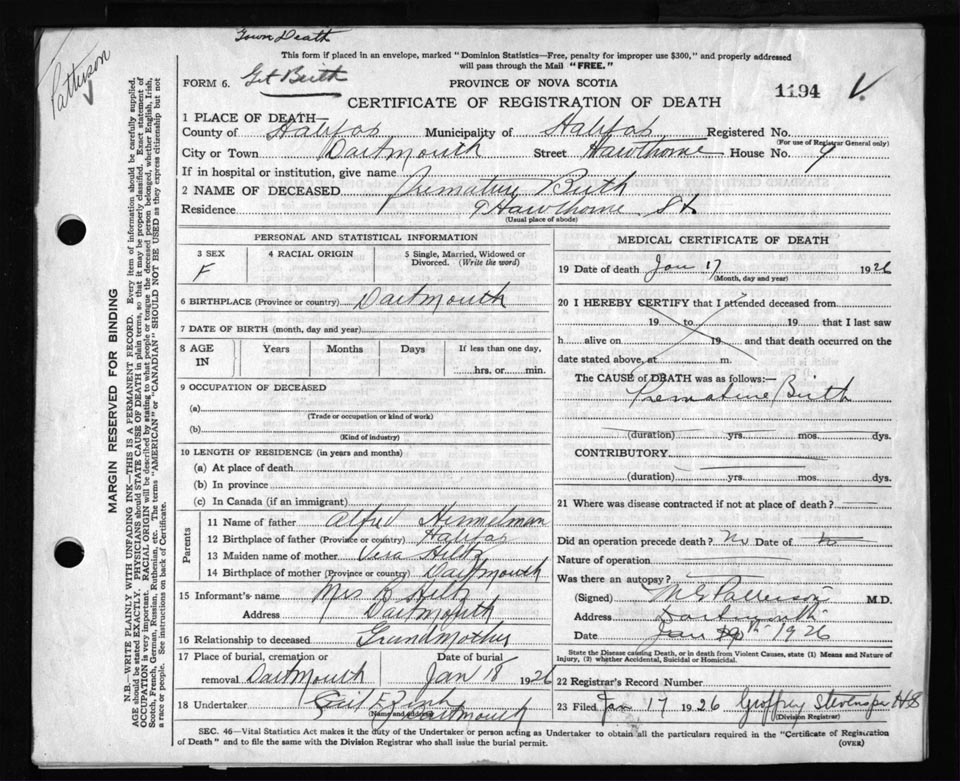 Town Death
This form if placed in an envelope, marked "Dominion Statistics—Free, penalty for improper use $300," and properly addressed
will pass through the Mail "FREE."
Patterson
FORM 6. Get Birth
PROVINCE OF NOVA SCOTIA
CERTIFICATE OF REGISTRATION OF DEATH
1194
1 PLACE OF DEATH—
County of Halifax Municipality of Halifax Registered No.
(For use of Registrar General only)
City or Town Dartmouth Street Hawthorne House No. 9
If in hospital or institution, give name
2 NAME OF DECEASED Premature Birth
Residence 9 Hawthorne St
(Usual place of abode)
MARGIN RESERVED FOR BINDING
N.B.—WRITE PLAINLY WITH UNFADING INK—THIS IS A PERMANENT RECORD. Every item of information should be carefully supplied.
AGE should be stated EXACTLY. PHYSICIANS should STATE CAUSE OF DEATH in plain terms, so that it may be properly classified. Exact statement of
OCCUPATION is very important. RACIAL ORIGIN will be described by stating to what people or tongue the deceased person belonged, whether English, Irish,
Scotch, French, German, Russian, Ruthenian, etc. The terms "AMERICAN" or "CANADIAN" SHOULD NOT BE USED as they express citizenship but not
a race or people. See instructions on back of Certificate.
PERSONAL AND STATISTICAL INFORMATION
3 SEX
F
4 RACIAL ORIGIN
5 Single, Married, Widowed or
Divorced. (Write the word)
6 BIRTHPLACE (Province or country) Dartmouth
7 DATE OF BIRTH (month, day and year)
8 AGE
IN
Years Months Days If less than one day,
hrs. or min.
9 OCCUPATION OF DECEASED
(a)
(Trade or occupation or kind of work)
(b)
(Kind of industry)
10 LENGTH OF RESIDENCE (in years and months)
(a) At place of death
(b) In province
(c) In Canada (if an immigrant)
Parents
11 Name of father Alfred Himmelman
12 Birthplace of father (Province or country) Halifax
13 Maiden name of mother Vera Hiltz
14 Birthplace of mother (Province or country) Dartmouth
15 Informant's name Mrs B Hiltz
Address Dartmouth
16 Relationship to deceased Grandmother
17 Place of burial, cremation or
removal Dartmouth
Date of burial
Jan 18 1926
18 Undertaker
(Name and address)
Dartmouth
MEDICAL CERTIFICATE OF DEATH
19 Date of death Jan 17 1926
(Month, day and year)
20 I HEREBY CERTIFY that I attended deceased from
19 to 19 that I last saw
h alive on 19 and that death occurred on the
date stated above, at m.
The CAUSE of DEATH was as follows:—
Premature Birth
(duration) yrs. mos. dys.
CONTRIBUTORY
(duration) yrs. mos. dys.
21 Where was disease contracted if not at place of death?
Did an operation precede death? No Date of
Nature of operation
Was there an autopsy?
(Signed) M G Patterson M.D.
Address Dartmouth
Date Jan 1926
State the Disease causing Death, or in death from Violent Causes, state (1) Means and Nature of
Injury, (2) whether Accidental, Suicidal or Homicidal.
22 Registrar's Record Number
23 Filed Jan 17 1926 Geoffrey Stevens
(Division Registrar)
SEC. 46—Vital Statistics Act makes it the duty of the Undertaker or person acting as Undertaker to obtain all the particulars required in the "Certificate of Registration
of Death" and to file the same with the Division Registrar who shall issue the burial permit.
(OVER)